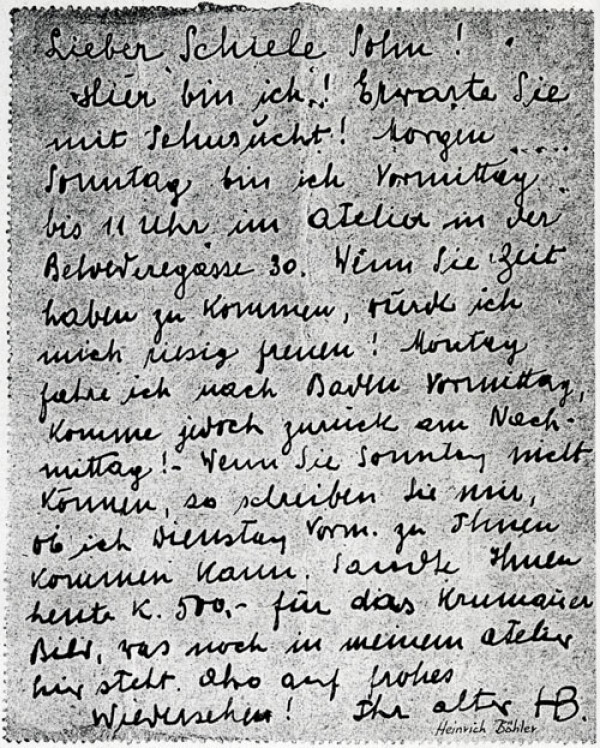 Lieber Schiele Sohn!
Hier bin ich! Erwarte Sie
mit Sehnsucht! Morgen ....
Sonntag bin ich Vormittag
bis 11 Uhr im Atelier in der
Belvederegasse 30. Wenn Sie Zeit
haben zu kommen, würde ich
mich riesig freuen! Montag
fahre ich nach Baden Vormittag,
komme jedoch zurück am Nach-
mittag!- Wenn Sie Sonntag nicht
können, so schreiben Sie mir,
ob ich Dienstag Vorm. zu Ihnen
kommen kann. Sandte Ihnen
heute K. 500,- für das Krumauer
Bild, was noch in meinem Atelier
hier steht. Also auf frohes
Wiedersehen! Ihr alter HB.
Heinrich Böhler